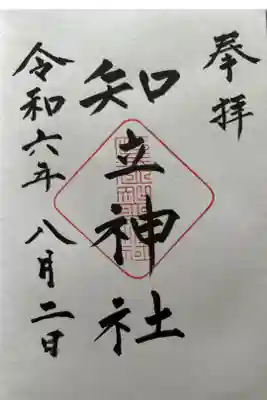 奉拝
知立神社
令和六年 八月二日